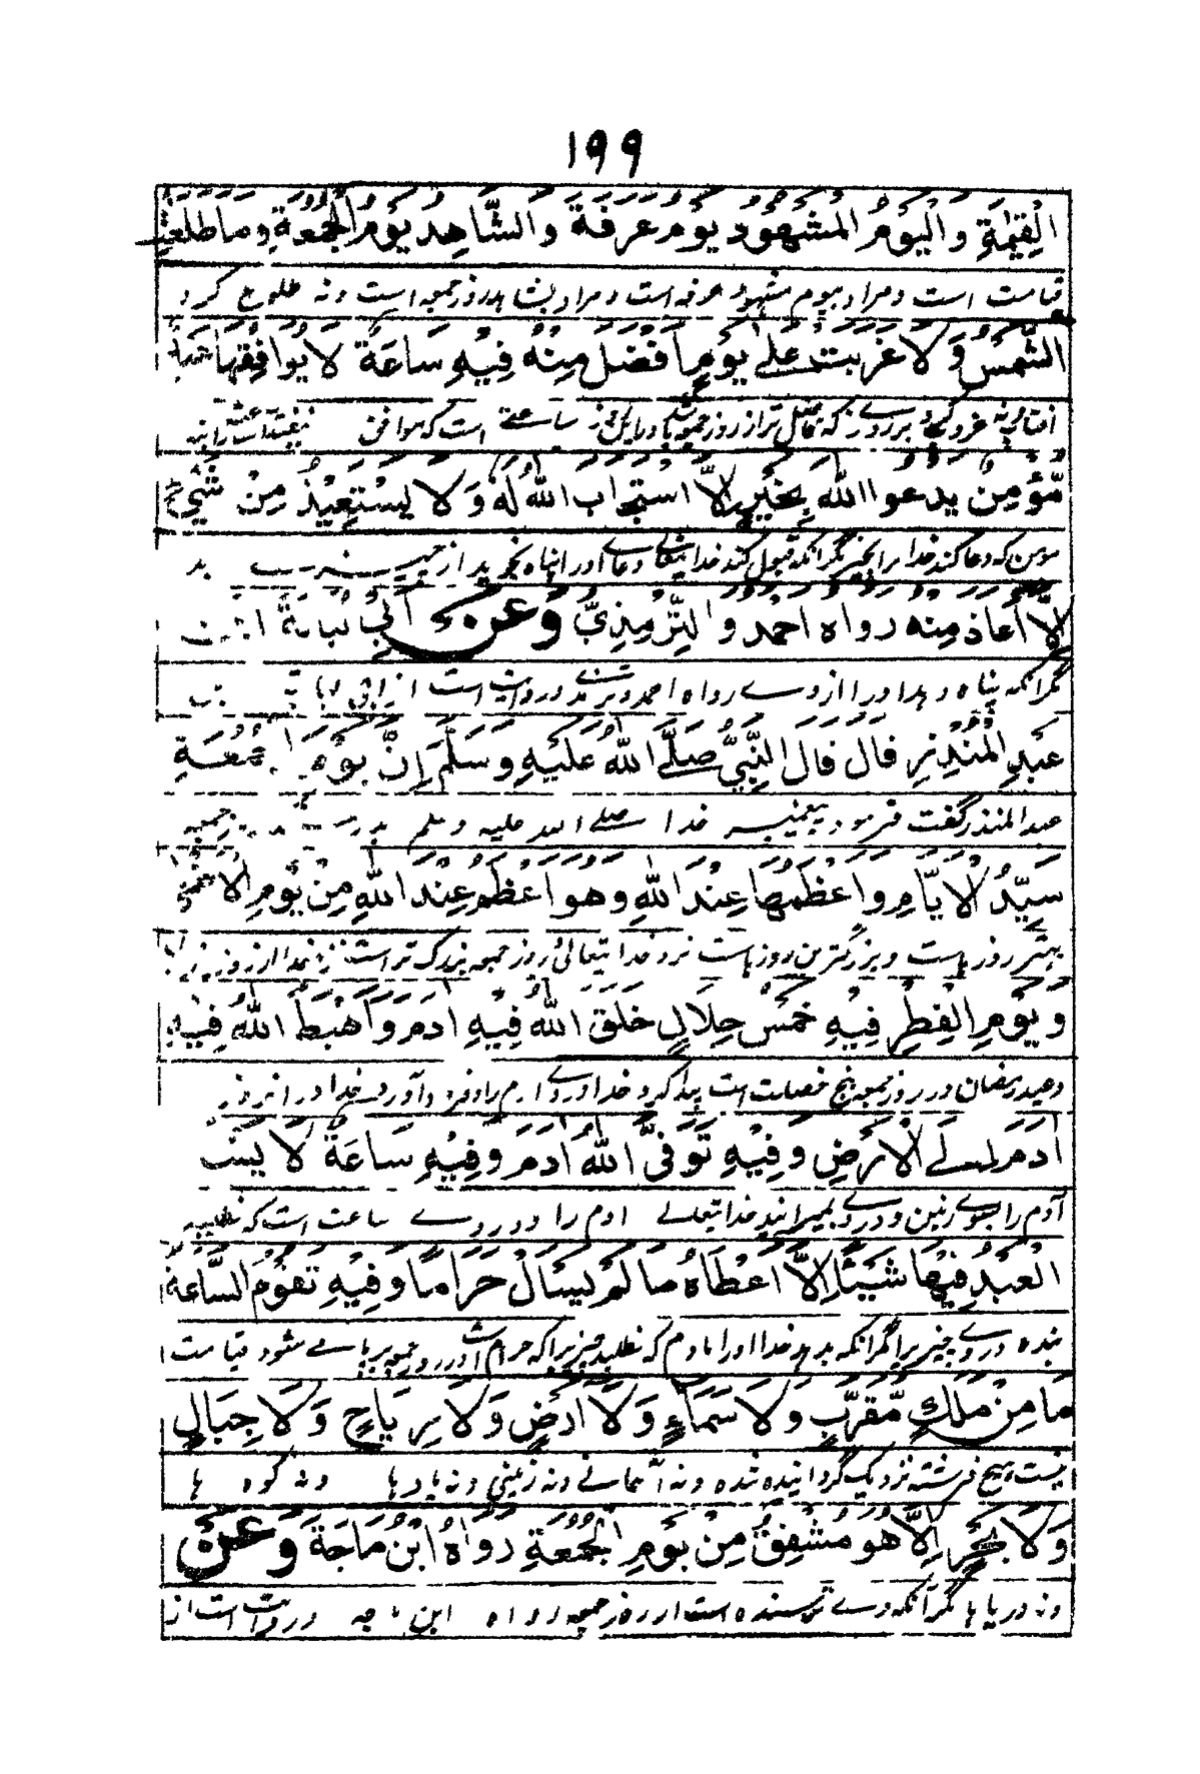 ١٩٩
الْقِيٰمَةِ وَالْيَوْمُ الْمَشْهُوْدُ يَوْمُ عَرَفَةَ وَالشَّاهِدُ يَوْمُ الْجُمُعَةِ وَمَا طَلَعَتِ
قیامت است و مراد بیوم مشهود عرفه است و مراد بشاهد روز جمعه است ونه طلوع کرد
الشَّمْسُ وَلَا غَرَبَتْ عَلٰے يَوْمٍ اَفْضَلَ مِنْهُ فِيْهِ سَاعَةٌ لَا يُوَافِقُهَا عَبْدٌ
آفتاب ونه غروب کرد بر روزے که فاضل تر از روز جمعه ساعتے است که موافق
مُّؤْمِنٌ يَدْعُوا اللّٰهَ بِخَيْرٍ اِلَّا اسْتَجَابَ اللّٰهُ لَهٗ وَلَا يَسْتَعِيْذُ مِنْ شَيْءٍ
مومن که دعا کند خدا را بخیر مگر آنکه قبول کند خدا دعاے اورا و پناه نجوید از بد
اِلَّا اَعَاذَ مِنْهُ رَوَاهُ اَحْمَدُ وَالتِّرْمِذِيُّ وَعَنْ اَبِيْ لُبَابَةَ ابْنِ
مگر آنکه پناه دهد اورا ازوے رواه احمد و ترمذی و روایت است از ابی لبابه بن
عَبْدِ الْمُنْذِرِ قَالَ قَالَ النَّبِيُّ صَلَّے اللّٰهُ عَلَيْهِ وَسَلَّمَ اِنَّ يَوْمَ الْجُمُعَةِ
عبدالمنذر گفت فرمود پیغمبر خدا صلے الله علیه وسلم جمعه
سَيِّدُ الْاَيَّامِ وَاَعْظَمُهَا عِنْدَ اللّٰهِ وَهُوَ اَعْظَمُ عِنْدَ اللّٰهِ مِنْ يَوْمِ الْاَضْحٰى
بهتر روز هاست و بزرگترین روزهاست نزد خدا تعالیٰ روز جمعه بزرگ تر است نزد خدا از روز
وَيَوْمِ الْفِطْرِ فِيْهِ خَمْسُ خِلَالٍ خَلَقَ اللّٰهُ فِيْهِ اٰدَمَ وَاَهْبَطَ اللّٰهُ فِيْهِ
وعید رمضان در روز جمعه پنج خصلت است پیدا کرد خدا دروے آدم را و فرود آورد خدا دران روز
اٰدَمَ اِلَے الْاَرْضِ وَفِيْهِ تَوَفَّى اللّٰهُ اٰدَمَ وَفِيْهِ سَاعَةٌ لَا يَسْئَلُ
آدم را بسوے زمین و دروے بمیرانید خدا تعالے آدم را و دروے ساعت است که نطلبد
الْعَبْدُ فِيْهَا شَيْئًا اِلَّا اَعْطَاهُ مَا لَمْ يَسْاَلْ حَرَامًا وَفِيْهِ تَقُوْمُ السَّاعَةُ
بنده دروے چیزیرا مگر آنکه بدهد خدا اورا مادام که نطلبد چیزیرا که حرام است و در روز جمعه برپا مے شود قیامت
مَا مِنْ مَلَكٍ مُّقَرَّبٍ وَلَا سَمَاءٍ وَلَا اَرْضٍ وَلَا رِيَاحٍ وَلَا جِبَالٍ
نیست هیچ فرشته نزدیک گردانیده شده ونه آسمانے ونه زمینی ونه بادها ونه کوه ها
وَلَا بَحْرٍ اِلَّا هُوَ مُشْفِقٌ مِنْ يَوْمِ الْجُمُعَةِ رَوَاهُ ابْنُ مَاجَةَ وَعَنْ
ونه دریاها مگر آنکه وے ترسنده است از روز جمعه رواه ابن ماجه و روایت است از